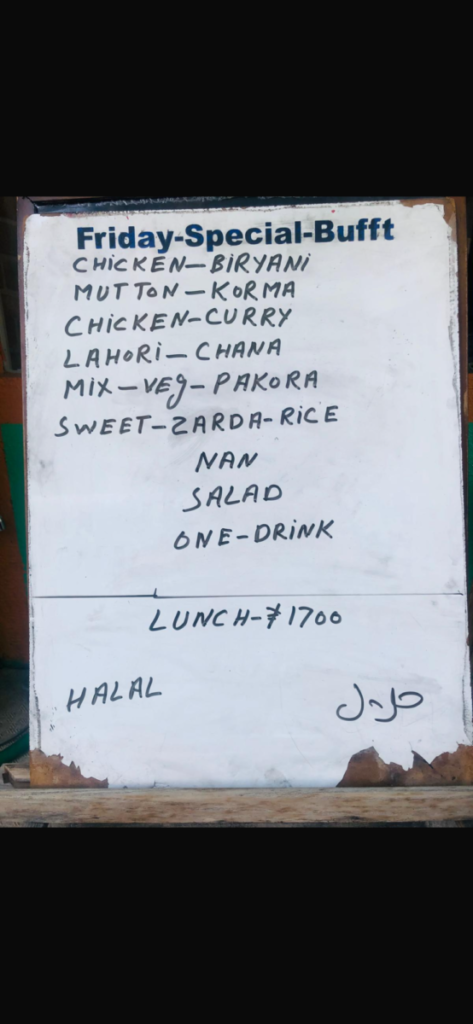 Friday-Special-Bufft
CHICKEN-BIRYANI
MUTTON-KORMA
CHICKEN-CURRY
LAHORI-CHANA
MIX-VEg-PAKORA
SWEET-ZARDA-RICE
NAN
SALAD
ONE-DRINK
LUNCH-¥1700
HALAL حلال